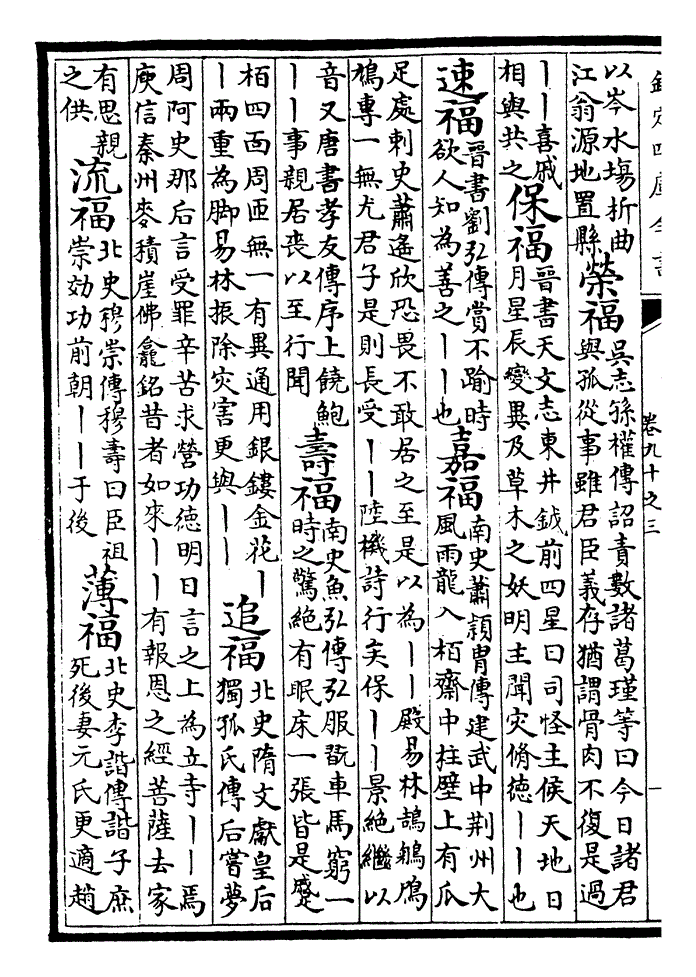 欽定四庫全書
卷九十之三
以岑水場折曲
江翁源地置縣
榮福
吳志孫權傳詔責數諸葛瑾等曰今日諸君
與孤從事雖君臣義存猶謂骨肉不復是過
丨丨喜戚
相與共之
保福
晉書天文志東井鉞前四星曰司怪主候天地日
月星辰變異及草木之妖明主聞灾脩徳丨丨也
速福
晉書劉弘傳賞不踰時
欲人知為善之丨丨也
嘉福
南史蕭穎胄傳建武中荆州大
風雨龍入栢齋中柱壁上有爪
足處刺史蕭遙欣恐畏不敢居之至是以為丨丨殿易林鵠鵴鳲
鳩專一無尤君子是則長受丨丨陸機詩行矣保丨丨景絶繼以
音又唐書孝友傳序上饒鮑
丨丨事親居喪以至行聞
壽福
南史魚弘傳弘服翫車馬窮一
時之驚絶有眠床一張皆是蹙
栢四面周匝無一有異通用銀鏤金花丨
丨兩重為脚易林振除灾害更與丨丨
追福
北史隋文獻皇后
獨孤氏傳后嘗夢
周阿史那后言受罪辛苦求營功徳明日言之上為立寺丨丨焉
庾信秦州麥積崖佛龕銘昔者如來丨丨有報恩之經菩薩去家
有思親
之供
流福
北史穆崇傳穆壽曰臣祖
崇効功前朝丨丨于後
薄福
北史李諧傳諧子庶
死後妻元氏更適趙